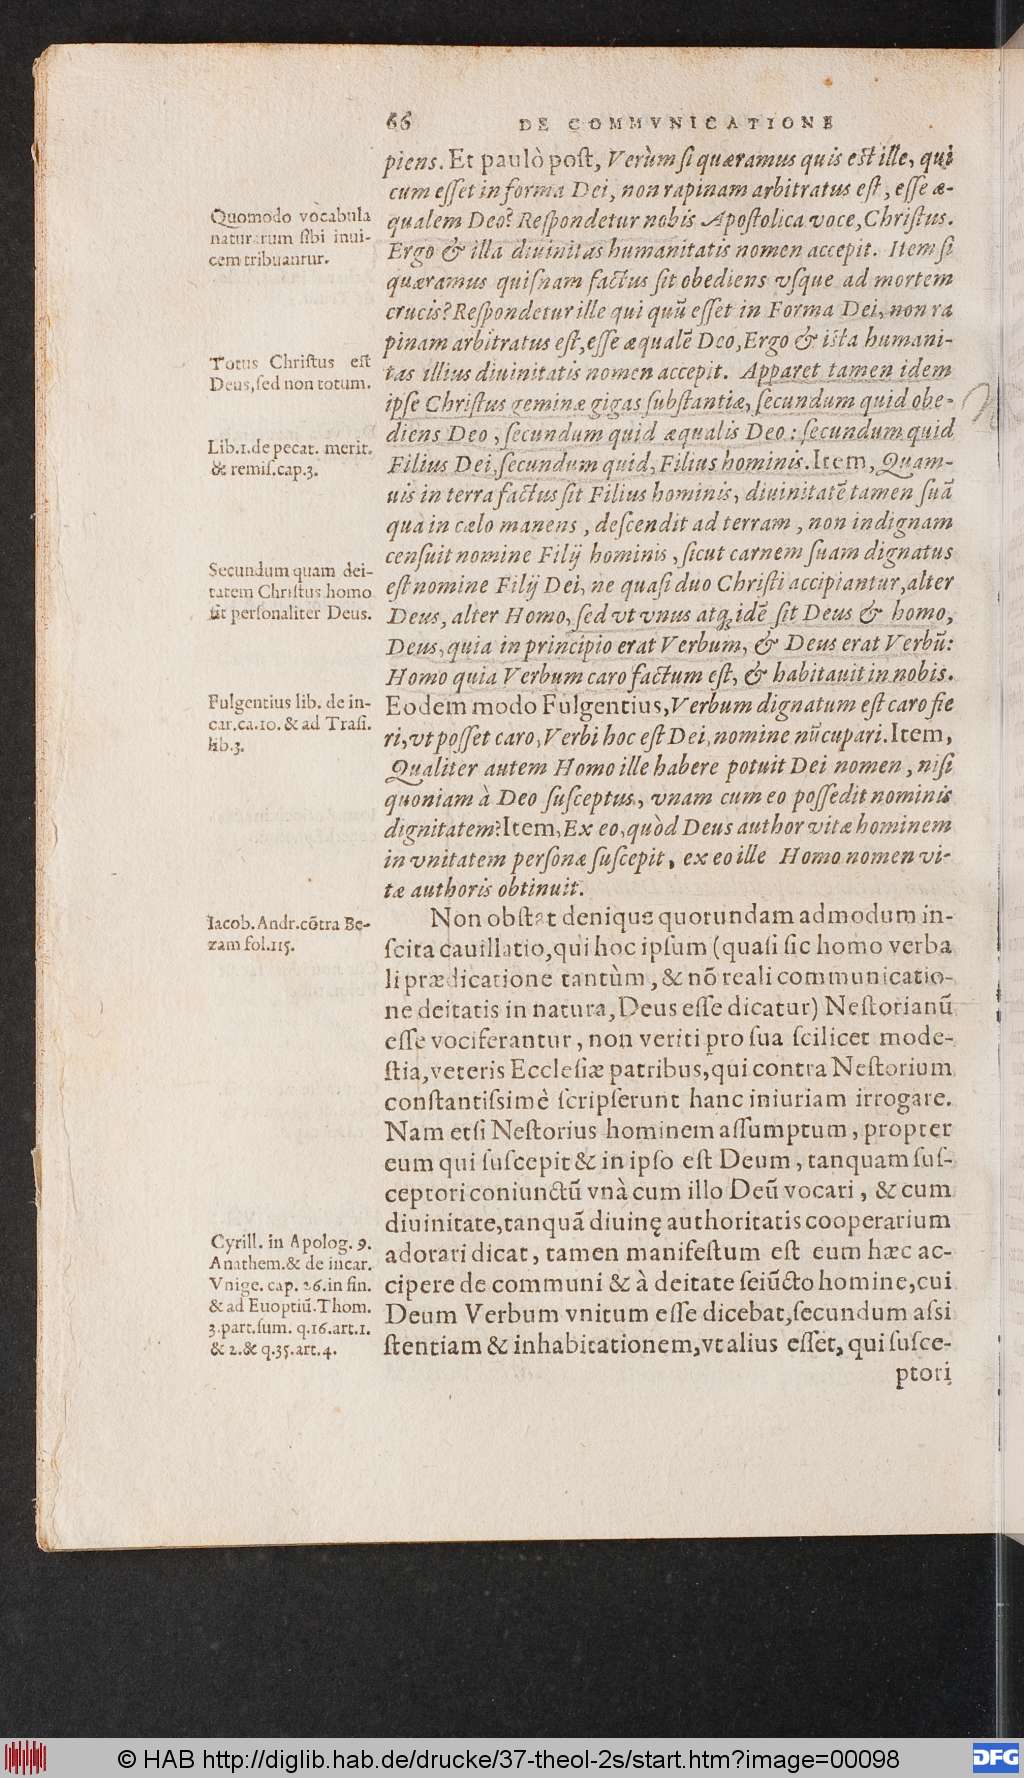 66 DE COMMVNICATIONE
piens. Et paulò post, Verùm si quæramus quis est ille, qui
cum esset in forma Dei, non rapinam arbitratus est, esse æ-
qualem Deo? Respondetur nobis Apostolica voce, Christus.
Ergo & illa diuinitas humanitatis nomen accepit. Item si
quæramus quisnam factus sit obediens vsque ad mortem
crucis? Respondetur ille qui quũ esset in Forma Dei, non ra
pinam arbitratus est, esse æqualẽ Deo, Ergo & ista humani-
tas illius diuinitatis nomen accepit. Apparet tamen idem
ipse Christus geminæ gigas substantiæ, secundum quid obe-
diens Deo, secundum quid æqualis Deo: secundum quid
Filius Dei, secundum quid, Filius hominis. Item, Quam-
uis in terra factus sit Filius hominis, diuinitatẽ tamen suã
qua in cælo manens, descendit ad terram, non indignam
censuit nomine Filij hominis, sicut carnem suam dignatus
est nomine Filij Dei, ne quasi duo Christi accipiantur, alter
Deus, alter Homo, sed vt vnus atq; idẽ sit Deus & homo,
Deus, quia in principio erat Verbum, & Deus erat Verbũ:
Homo quia Verbum caro factum est, & habitauit in nobis.
Eodem modo Fulgentius, Verbum dignatum est caro fie
ri, vt posset caro, Verbi hoc est Dei, nomine nũcupari. Item,
Qualiter autem Homo ille habere potuit Dei nomen, nisi
quoniam à Deo susceptus, vnam cum eo possedit nominis
dignitatem? Item, Ex eo, quòd Deus author vitæ hominem
in vnitatem personæ suscepit, ex eo ille Homo nomen vi-
tæ authoris obtinuit.
Non obstat denique quorundam admodum in-
scita cauillatio, qui hoc ipsum (quasi sic homo verba
li prædicatione tantùm, & nõ reali communicatio-
ne deitatis in natura, Deus esse dicatur) Nestorianũ
esse vociferantur, non veriti pro sua scilicet mode-
stia, veteris Ecclesiæ patribus, qui contra Nestorium
constantissimè scripserunt hanc iniuriam irrogare.
Nam etsi Nestorius hominem assumptum, propter
eum qui suscepit & in ipso est Deum, tanquam sus-
ceptori coniunctũ vnà cum illo Deũ vocari, & cum
diuinitate, tanquã diuinę authoritatis cooperarium
adorari dicat, tamen manifestum est eum hæc ac-
cipere de communi & à deitate seiũcto homine, cui
Deum Verbum vnitum esse dicebat, secundum assi
stentiam & inhabitationem, vt alius esset, qui susce-
ptori
Quomodo vocabula
naturarum sibi inui-
cem tribuantur.
Totus Christus est
Deus, sed non totum.
Lib.1.de pecat. merit.
& remis.cap.3.
Secundum quam dei-
tatem Christus homo
sit personaliter Deus.
Fulgentius lib. de in-
car.ca.10. & ad Trasi.
lib.3.
Iacob. Andr. cõtra Be-
zam fol.115.
Cyrill. in Apolog. 9.
Anathem.& de incar.
Vnige. cap. 26.in fin.
& ad Euoptiũ.Thom.
3.part.sum. q.16.art.1.
& 2.& q.35.art.4.
© HAB http://diglib.hab.de/drucke/37-theol-2s/start.htm?image=00098
DFG